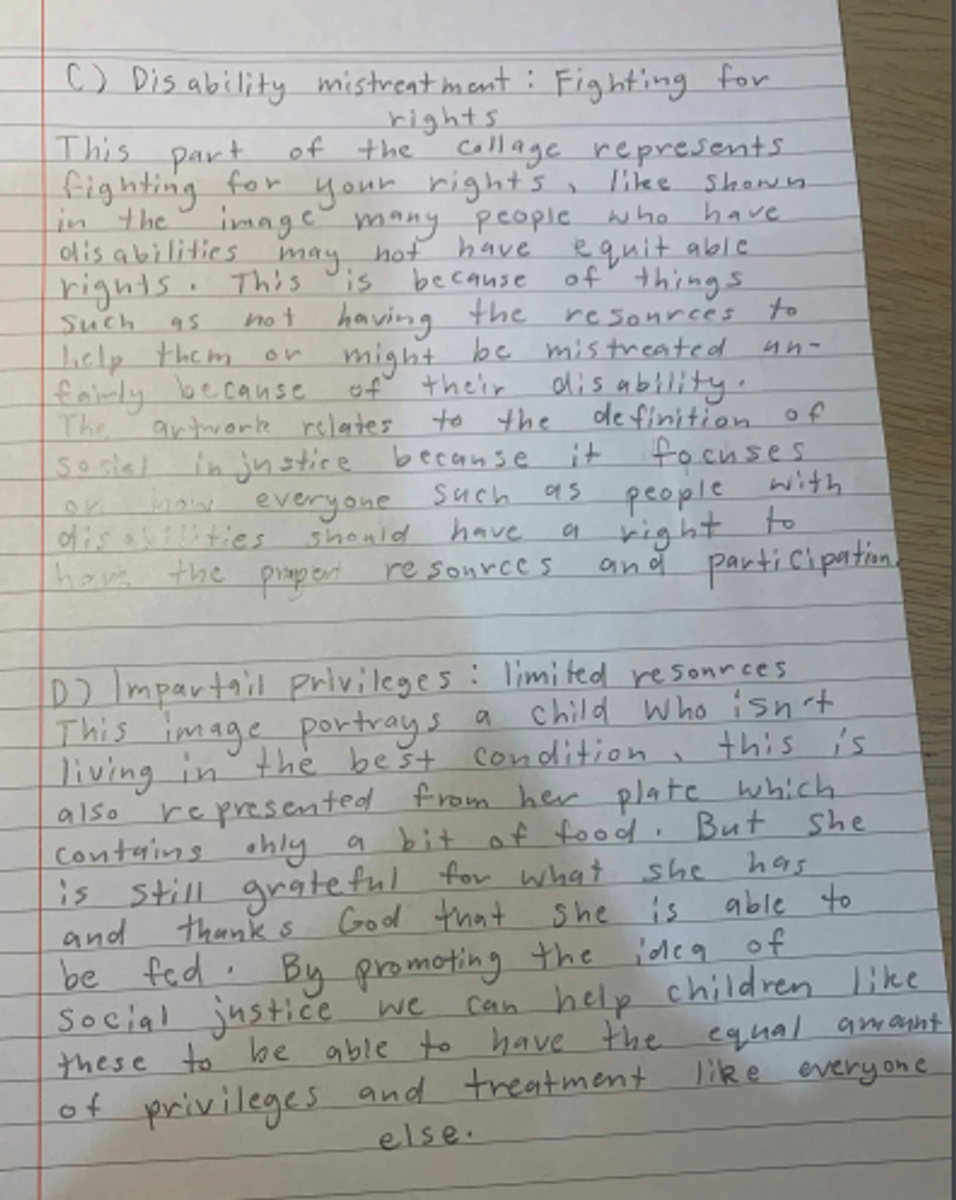 C) Disability mistreatment : Fighting for
rights
This part of the collage represents
fighting for your rights, like shown
in the image many people who have
disabilities may not have equitable
rights. This is because of things
such as not having the resources to
help them or might be mistreated un-
fairly because of their disability.
The artwork relates to the definition of
social injustice because it focuses
on how everyone such as people with
disabilities should have a right to
have the proper resources and participation.
D) Impartail privileges : limited resources
This image portrays a child who isn't
living in the best condition, this is
also represented from her plate which
contains only a bit of food. But she
is still grateful for what she has
and thanks God that she is able to
be fed. By promoting the idea of
social justice we can help children like
these to be able to have the equal amount
of privileges and treatment like everyone
else.